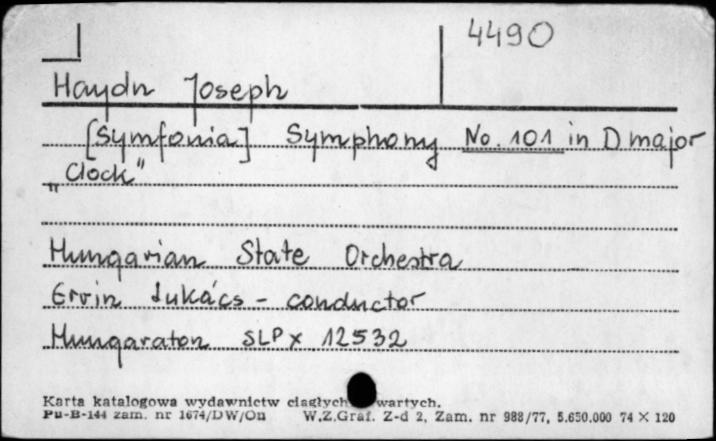 4490
Haydn Joseph
[Symfonia] Symphony No. 101 in D major
„Clock"
Hungarian State Orchestra
Ervin Lukács - conductor
Hungaraton SLPX 12532
Karta katalogowa wydawnictw ciągłych wartych.
Pu-B-144 zam. nr 1674/DW/Ou W.Z.Graf. Z-d 2, Zam. nr 988/77, 5.650.000 74 X 120